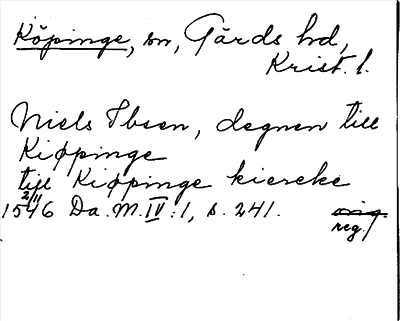 Köpinge, sn, Gärds hd,
Krist. l.
Niels Ibsen, degnen till
Kiøppinge
till Kiøpinge kiercke
2/11
1546 Da. M. IV:1, s. 241.
orig.
reg./